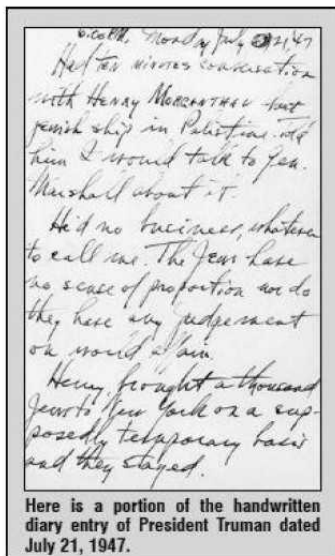 6:00 P.M. Monday July 21, '47
Had ten minutes conversation
with Henry Morgenthau about
Jewish ship in Palestine. Told
him I would talk to Gen.
Marshall about it.
He'd no business, whatever
to call me. The Jews have
no sense of proportion nor do
they have any judgement
on world affairs.
Henry brought a thousand
Jews to New York on a sup-
posedly temporary basis
and they stayed.
Here is a portion of the handwritten
diary entry of President Truman dated
July 21, 1947.